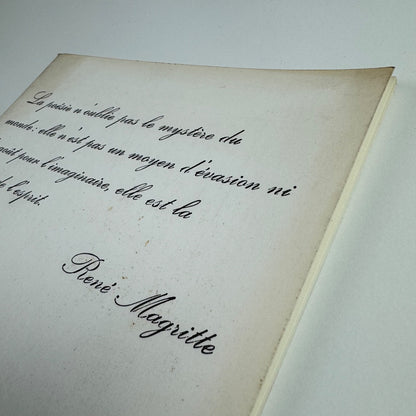 La poésie n'oublie pas le mystère du
monde: elle n'est pas un moyen d'évasion ni
pour l'imaginaire, elle est la
l'esprit.
René Magritte